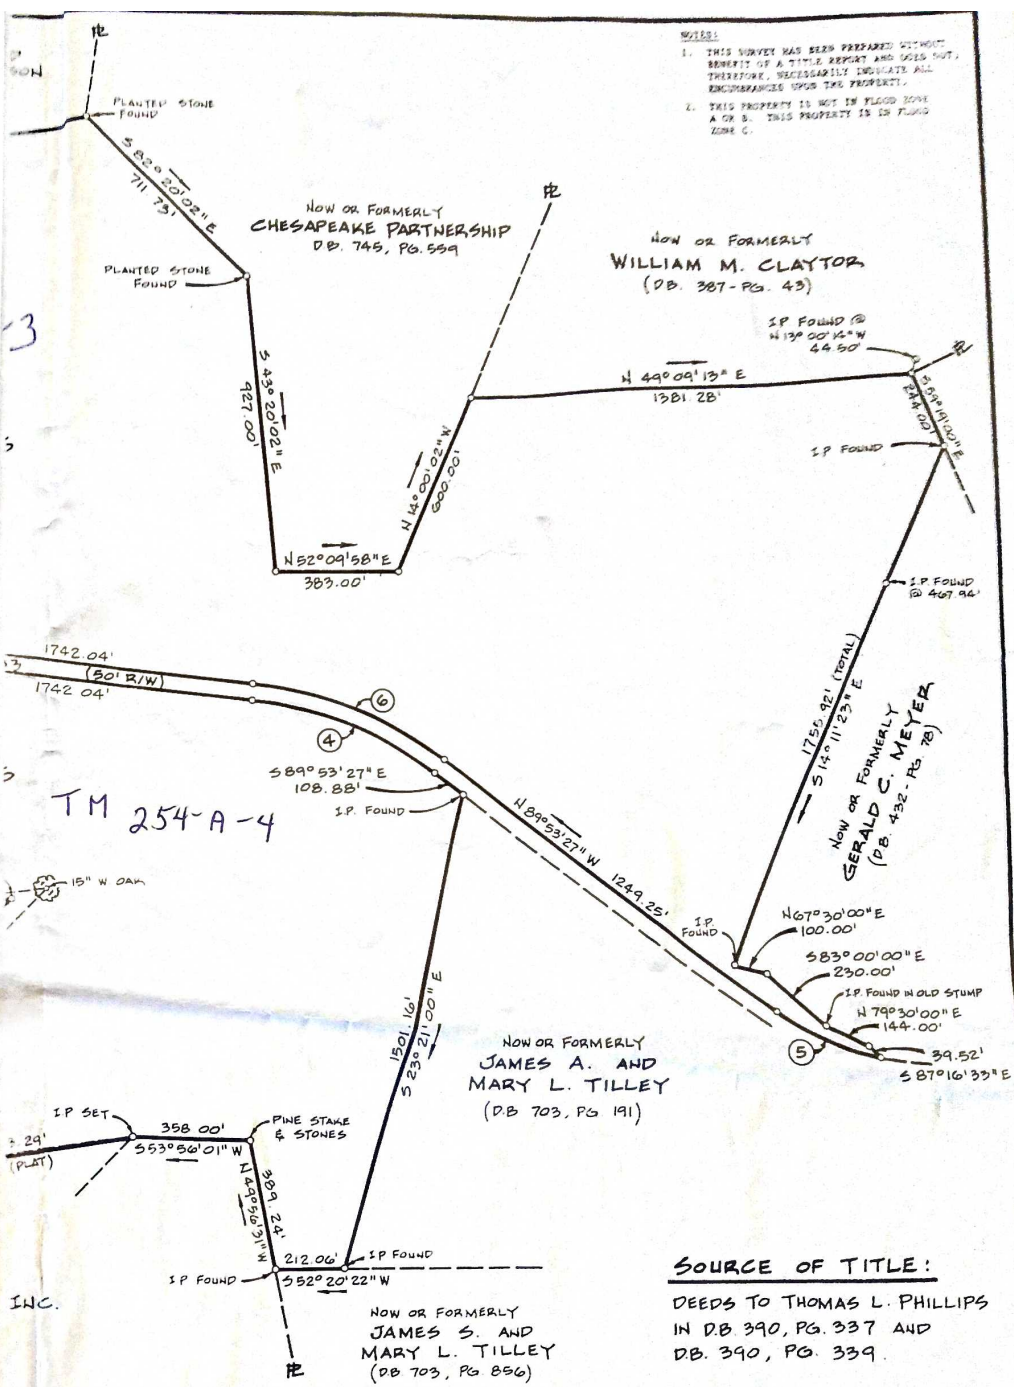 SON
℄
NOTES:
1. THIS SURVEY HAS BEEN PREPARED WITHOUT
BENEFIT OF A TITLE REPORT AND DOES NOT,
THEREFORE, NECESSARILY INDICATE ALL
ENCUMBRANCES UPON THE PROPERTY.
2. THIS PROPERTY IS NOT IN FLOOD ZONE
A OR B. THIS PROPERTY IS IN FLOOD
ZONE C.
PLANTED STONE
FOUND
S 82° 20'02" E
711.73'
PLANTED STONE
FOUND
NOW OR FORMERLY
CHESAPEAKE PARTNERSHIP
D.B. 745, PG. 559
℄
NOW OR FORMERLY
WILLIAM M. CLAYTOR
(D.B. 387-PG. 43)
I.P. FOUND @
N 13° 00'14" W
44.50'
℄
-3
S 43° 20'02" E
927.00'
N 49° 09'13" E
1381.28'
S 59° 19'00" E
244.00'
I.P. FOUND
N 14° 00'02" W
600.00'
N 52° 09'58" E
383.00'
I.P. FOUND
@ 467.94'
1742.04'
(50' R/W)
1742.04'
6
4
1755.92' (TOTAL)
S 14° 11'23" E
NOW OR FORMERLY
GERALD C. MEYER
(D.B. 432-PG. 78)
S 89° 53'27" E
108.88'
I.P. FOUND
TM 254-A-4
N 89° 53'27" W
1249.25'
15" W OAK
I.P.
FOUND
N 67° 30'00" E
100.00'
S 83° 00'00" E
230.00'
I.P. FOUND IN OLD STUMP
N 79° 30'00" E
144.00'
5
39.52'
S 87° 16'33" E
1501.16'
S 23° 21'00" E
NOW OR FORMERLY
JAMES A. AND
MARY L. TILLEY
(D.B. 703, PG. 191)
I.P. SET
358.00'
S 53° 56'01" W
PINE STAKE
& STONES
3.29'
(PLAT)
N 49° 56'31" W
389.24'
212.06'
S 52° 20'22" W
I.P. FOUND
I.P. FOUND
℄
INC.
NOW OR FORMERLY
JAMES S. AND
MARY L. TILLEY
(D.B. 703, PG. 856)
SOURCE OF TITLE:
DEEDS TO THOMAS L. PHILLIPS
IN D.B. 390, PG. 337 AND
D.B. 390, PG. 339.